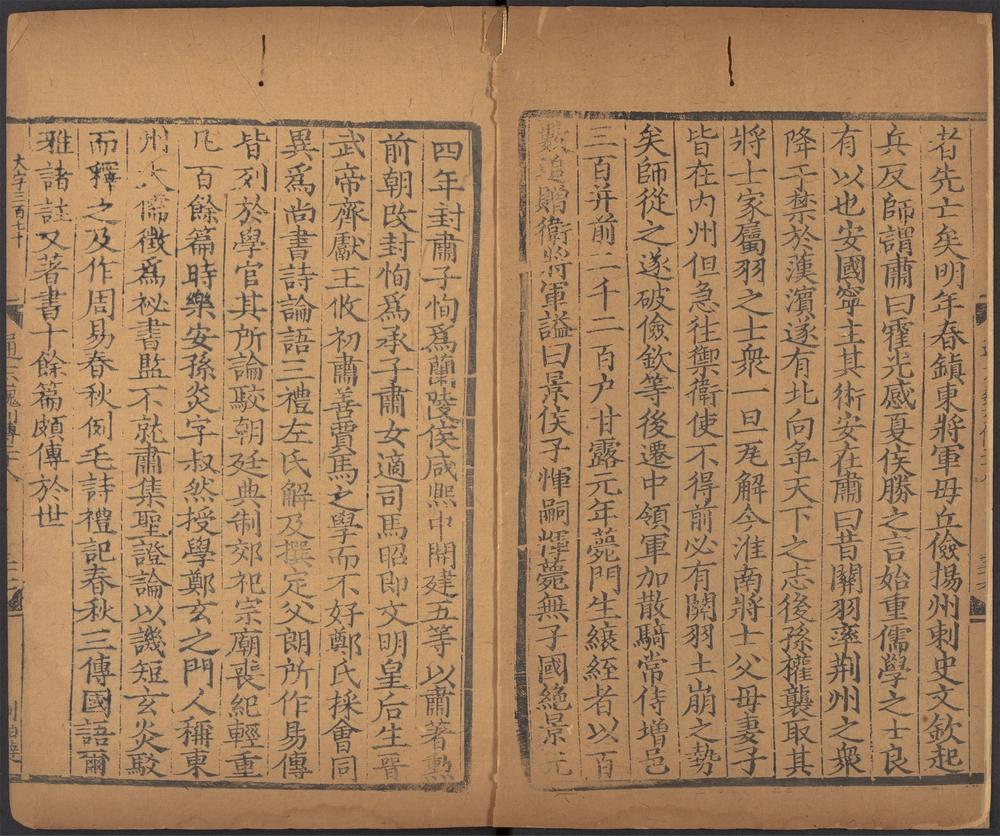 者先士矣明年春鎮東將軍毋丘儉揚州刺史文欽起
兵反師謂肅曰霍光感夏侯勝之言始重儒學之士良
有以也安國寧主其術安在肅曰昔關羽率荆州之衆
降于禁於漢濵遂有北向爭天下之志後孫權襲取其
將士家屬羽之士衆一旦瓦解今淮南將士父母妻子
皆在内州但急往禦衛使不得前必有關羽土崩之勢
矣師從之遂破儉欽等後遷中領軍加散騎常侍增邑
三百并前二千二百户甘露元年薨門生縗絰者以百
數追贈衛將軍謚曰景侯子惲嗣惲薨無子國絶景元
四年封肅子恂爲蘭陵侯咸熙中開建五等以肅著勲
前朝改封恂爲承子肅女適司馬昭即文明皇后生晋
武帝齊獻王攸初肅善賈馬之學而不好鄭氏採會同
異爲尚書詩論語三禮左氏解及撰定父朗所作易傳
皆列於學官其所論駮朝廷典制郊祀宗廟喪紀輕重
凡百餘篇時樂安孫炎字叔然授學鄭玄之門人稱東
州大儒徵爲祕書監不就肅集聖證論以譏短玄炎駮
而釋之及作周易春秋例毛詩禮記春秋三傳國語爾
雅諸註又著書十餘篇頗傳於世
大字三百七十